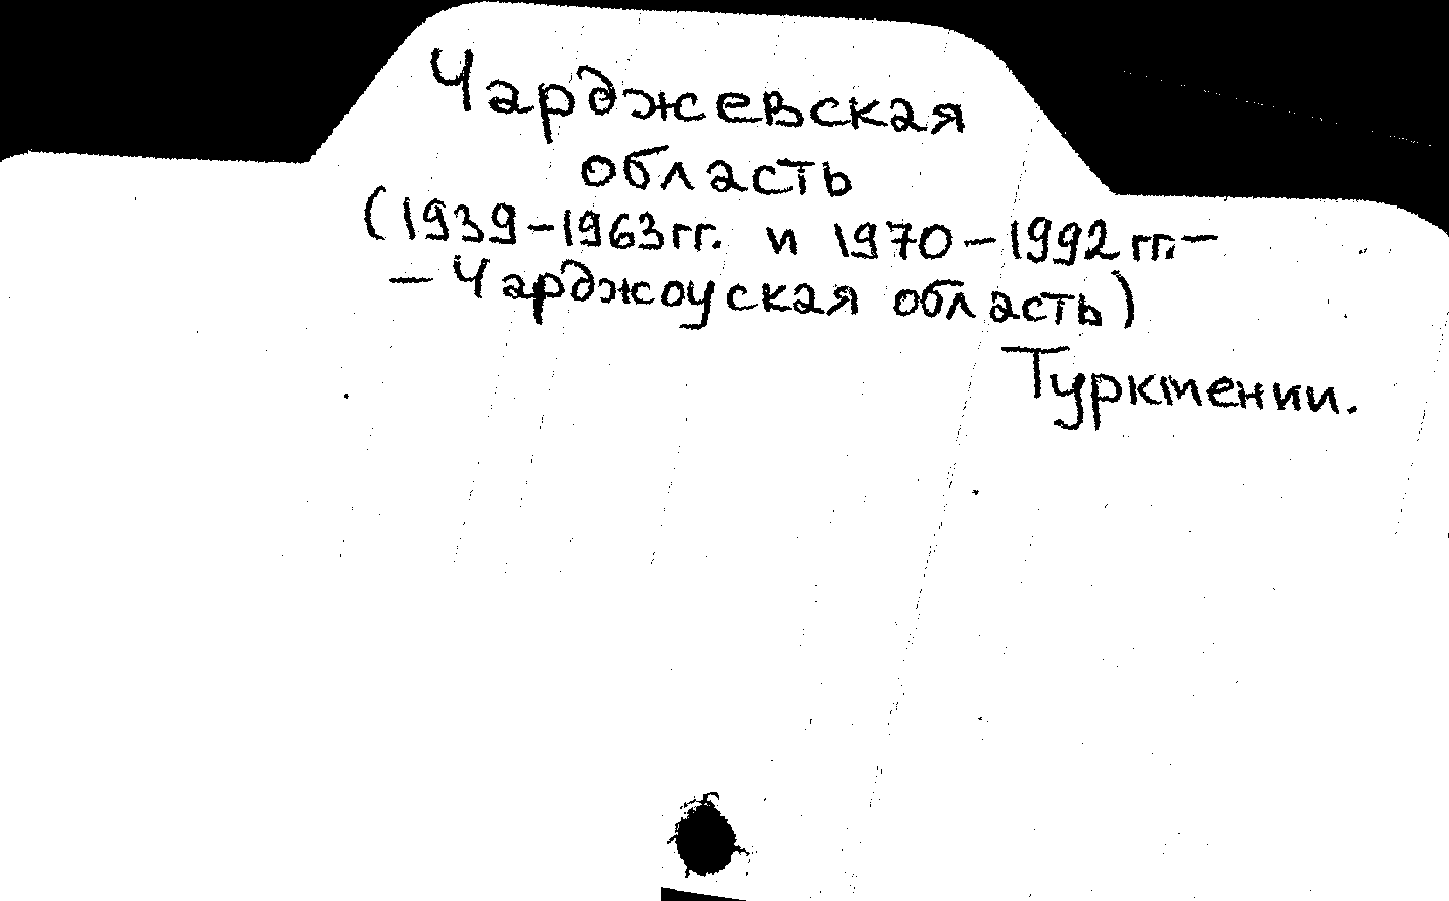 Чарджевская
область
(1939-1963гг. и 1970-1992гг.-
- Чарджоуская область)
Туркмении.